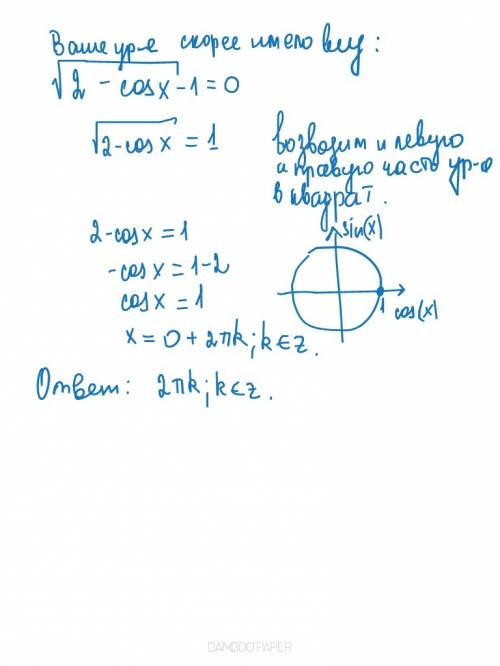 Ваше ур-е скорее имело вид:
√2 - cosx - 1 = 0
√2-cosx = 1
возводим и левую
и правую часть ур-я
в квадрат.
2-cosx = 1
-cosx = 1-2
cosx = 1
x = 0 + 2πk; k∈z.
sin(x)
1
cos(x)
Ответ: 2πk; k∈z.
BAMBOOPAPER